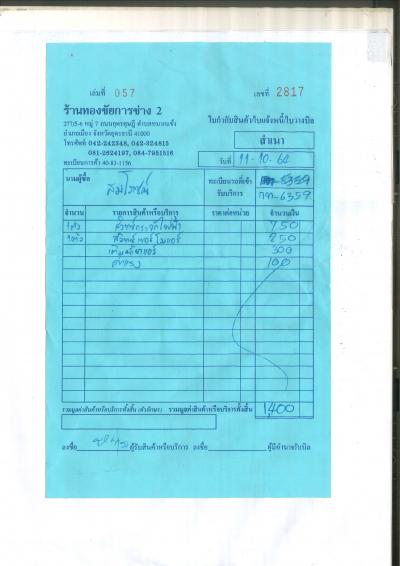 เล่มที่ 057 เลขที่ 2817
ร้านทองชัยการช่าง 2
277/5-6 หมู่ 7 ถนนยุทธอุดมดี ตำบลหมากแข้ง
อำเภอเมือง จังหวัดอุดรธานี 41000
ใบกำกับสินค้า/ใบแจ้งหนี้/ใบวางบิล
โทรศัพท์ 042-242348, 042-324815
081-2624197, 084-7951516
สำเนา
ทะเบียนการค้า 40-83-1156
วันที่ 11-10-64
นามผู้ซื้อ
ทะเบียนรถที่เข้ารับบริการ กท-6359
จำนวน รายการสินค้าหรือบริการ ราคาต่อหน่วย จำนวนเงิน
1ตัว สวิทซ์กระจกไฟฟ้า 750
250
300
ค่าแรง 100
รวมมูลค่าสินค้าหรือบริการทั้งสิ้น (ตัวอักษร) รวมมูลค่าสินค้าหรือบริการทั้งสิ้น 1,400
ลงชื่อ ผู้รับสินค้าหรือบริการ ลงชื่อ ผู้มีอำนาจรับบิล